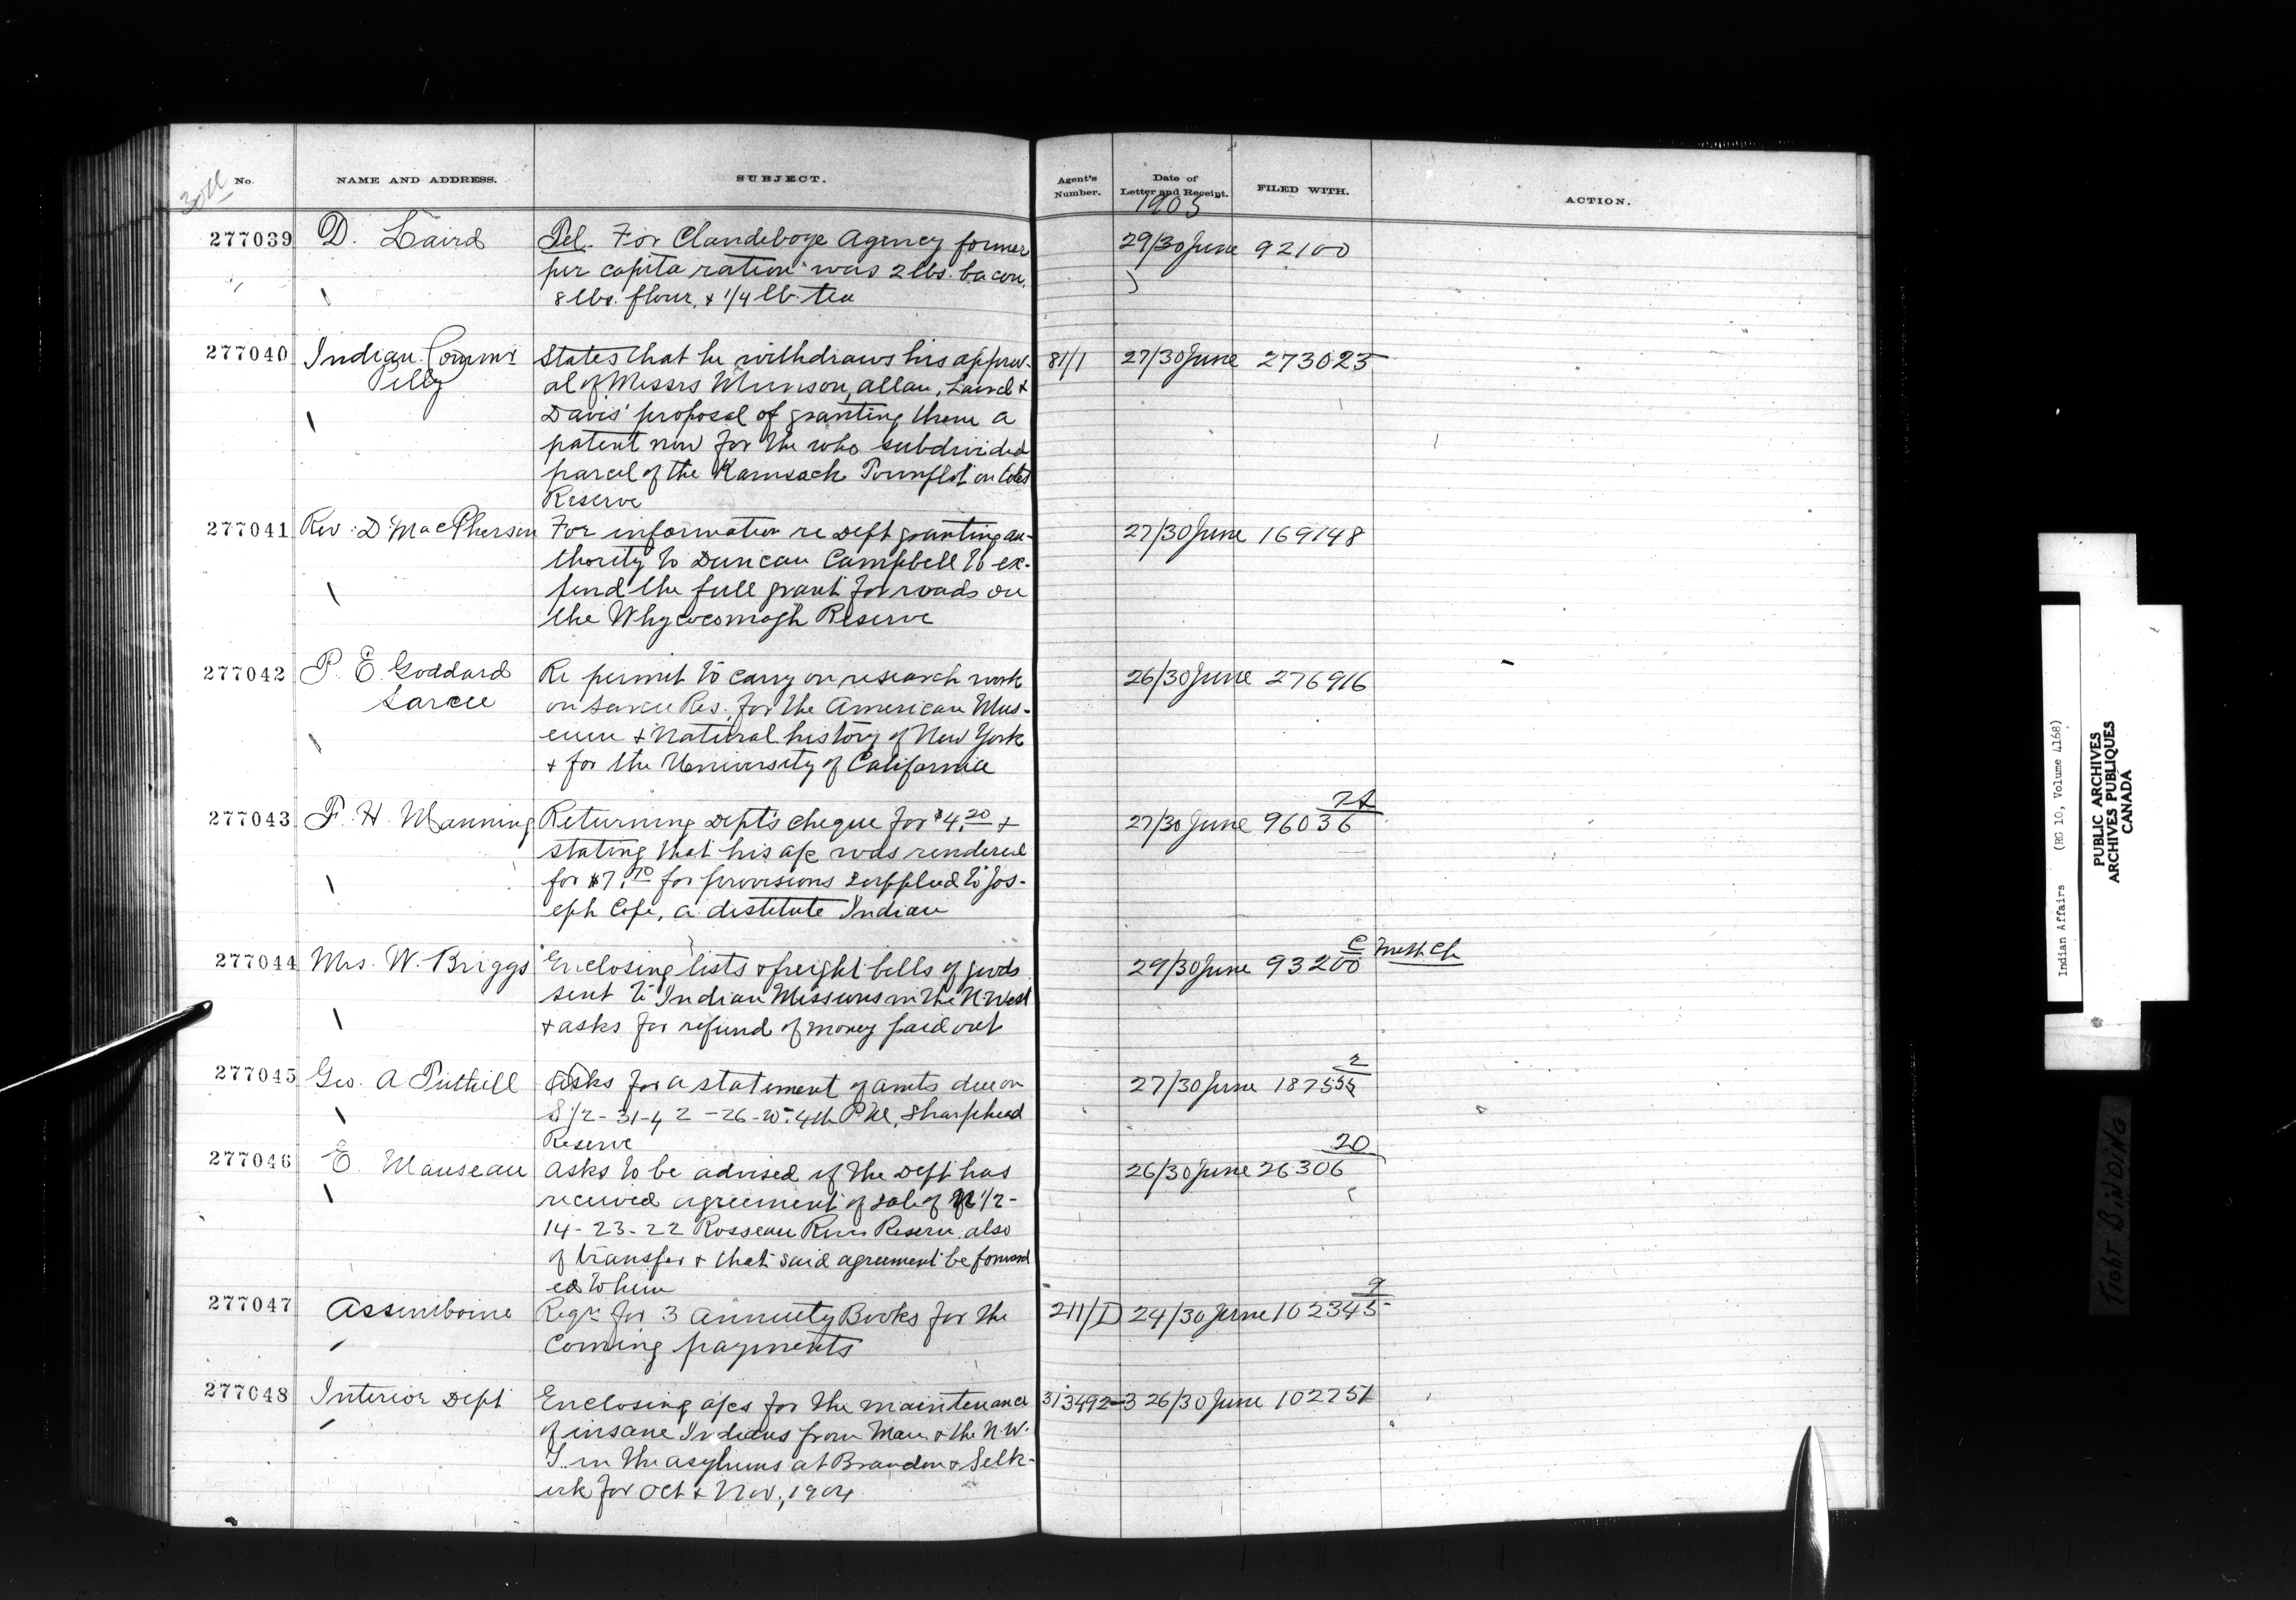 30th
No. NAME AND ADDRESS. SUBJECT. Agent's Number. Date of Letter and Receipt. FILED WITH. ACTION.
1905
277039 D. Laird Tel. For Clandeboye Agency former 29/30 June 92100
per capita ration was 2 lbs. bacon,
8 lbs. flour, & 1/4 lb. tea
277040 Indian Commr States that he withdraws his approv- 81/1 27/30 June 273023
Pelly al of Messrs Munson, Allan, Laird &
Davis' proposal of granting them a
patent now for the who subdivided
parcel of the Kamsack Townplot on Cotes
Reserve
277041 Rev. D MacPherson For information re Dept granting au- 27/30 June 169148
thority to Duncan Campbell to ex-
pend the full grant for roads on
the Whycocomagh Reserve
277042 P. E. Goddard Re permit to carry on research work 26/30 June 276916
Sarcee on Sarcee Res. for the American Mus-
eum & Natural history of New York
& for the University of California
277043 F. H. Manning Returning Dept's cheque for $4.20 & 27/30 June 96036
stating that his a/c was rendered
for $7.70 for provisions supplied to Jos-
eph Cope, a distitute Indian
277044 Mrs. W. Briggs Enclosing lists & freight bills of goods 29/30 June 93200 C Meth. Ch
sent to Indian Missions in the N. West
& asks for refund of money paid out
277045 Geo. A Tuthill Asks for a statement of amts due on 27/30 June 18755 2
S 1/2 - 31-42-26-W. 4th P M, Sharphead
Reserve
277046 E. Manseau Asks to be advised if the Dept has 26/30 June 26306 20
received agreement of sale of N 1/2 -
14-23-22 Rosseau River Reserve also
of transfer & that said agreement be forward
ed to him
277047 Assiniboine Reqn for 3 Annuity Books for the 211/D 24/30 June 102345 9
Coming payments
277048 Interior Dept Enclosing a/cs for the maintenance 313492-3 26/30 June 102751
of insane Indians from Man. & the N.W.
T. in the asylums at Brandon & Selk-
irk for Oct & Nov, 1904
Indian Affairs (RG 10, Volume 4168)
PUBLIC ARCHIVES
ARCHIVES PUBLIQUES
CANADA
TIGHT BINDING